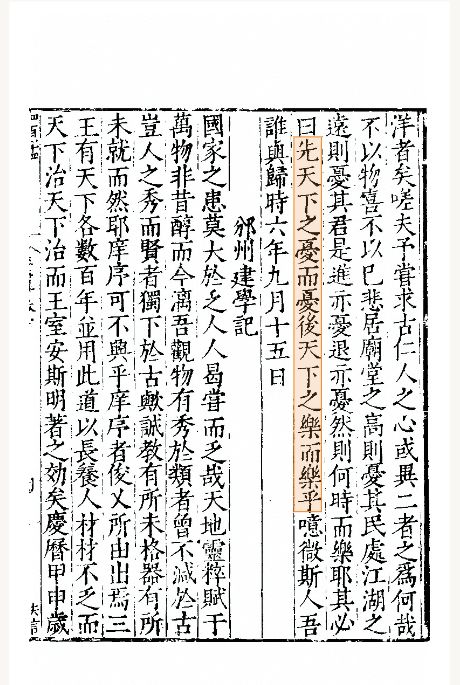 洋者矣嗟夫予嘗求古仁人之心或異二者之爲何哉
不以物喜不以已悲居廟堂之高則憂其民處江湖之
遠則憂其君是進亦憂退亦憂然則何時而樂耶其必
曰先天下之憂而憂後天下之樂而樂乎噫微斯人吾
誰與歸時六年九月十五日
邠州建學記
國家之患莫大於乏人人曷嘗而乏哉天地靈粹賦于
萬物非昔醇而今漓吾觀物有秀於類者曾不减於古
豈人之秀而賢者獨下於古歟誠教有所未格器有所
未就而然耶庠序可不興乎庠序者俊乂所由出焉三
王有天下各數百年並用此道以長養人材材不乏而
天下治天下治而王室安斯明著之効矣慶曆甲申歲